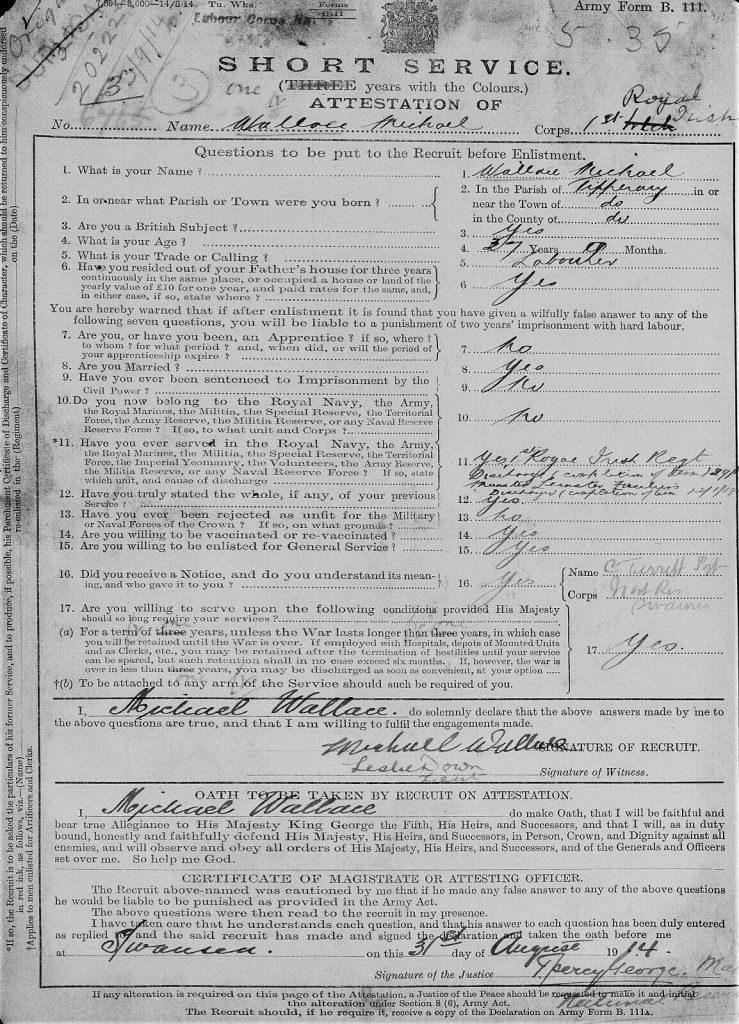 Forms
Army Form B. 111.
Labour Corps No.
5.35
20222
3/9/14
3
SHORT SERVICE.
(THREE years with the Colours.)
one
ATTESTATION OF
No. Name Wallace Michael Corps 1st Royal Irish
Questions to be put to the Recruit before Enlistment.
1. What is your Name? 1. Wallace Michael
2. In or near what Parish or Town were you born? 2. In the Parish of Tipperary in or
near the Town of do
in the County of do
3. Are you a British Subject? 3. Yes
4. What is your Age? 4. 37 Years 9 Months.
5. What is your Trade or Calling? 5. Labourer
6. Have you resided out of your Father's house for three years
continuously in the same place, or occupied a house or land of the
yearly value of £10 for one year, and paid rates for the same, and,
in either case, if so, state where? 6 Yes
You are hereby warned that if after enlistment it is found that you have given a wilfully false answer to any of the
following seven questions, you will be liable to a punishment of two years' imprisonment with hard labour.
7. Are you, or have you been, an Apprentice? if so, where?
to whom? for what period? and, when did, or will the period of
your apprenticeship expire? 7. No
8. Are you Married? 8. Yes
9. Have you ever been sentenced to Imprisonment by the
Civil Power? 9. No
10. Do you now belong to the Royal Navy, the Army,
the Royal Marines, the Militia, the Special Reserve, the Territorial
Force, the Army Reserve, the Militia Reserve, or any Naval Reserve
Reserve Force? If so, to what unit and Corps? 10. No
*11. Have you ever served in the Royal Navy, the Army,
the Royal Marines, the Militia, the Special Reserve, the Territorial
Force, the Imperial Yeomanry, the Volunteers, the Army Reserve,
the Militia Reserve, or any Naval Reserve Force? If so, state
which unit, and cause of discharge 11. Yes 1st Royal Irish Regt
Discharged completion of term
Leinster
12. Have you truly stated the whole, if any, of your previous
Service? 12. Yes
Discharged completion of term
13. Have you ever been rejected as unfit for the Military
or Naval Forces of the Crown? If so, on what grounds? 13. No
14. Are you willing to be vaccinated or re-vaccinated? 14. Yes
15. Are you willing to be enlisted for General Service? 15. Yes
16. Did you receive a Notice, and do you understand its mean-
ing, and who gave it to you? 16. Yes Name
Corps
17. Are you willing to serve upon the following conditions provided His Majesty
should so long require your services?
(a) For a term of three years, unless the War lasts longer than three years, in which case
you will be retained until the War is over. If employed with Hospitals, depots of Mounted Units
and as Clerks, etc., you may be retained after the termination of hostilities until your service
can be spared, but such retention shall in no case exceed six months. If, however, the war is
over in less than three years, you may be discharged as soon as convenient, at your option
17. Yes.
†(b) To be attached to any arm of the Service should such be required of you.
I, Michael Wallace do solemnly declare that the above answers made by me to
the above questions are true, and that I am willing to fulfil the engagements made.
Michael Wallace SIGNATURE OF RECRUIT.
Leslie Down Lieut Signature of Witness.
OATH TO BE TAKEN BY RECRUIT ON ATTESTATION.
I, Michael Wallace do make Oath, that I will be faithful and
bear true Allegiance to His Majesty King George the Fifth, His Heirs, and Successors, and that I will, as in duty
bound, honestly and faithfully defend His Majesty, His Heirs, and Successors, in Person, Crown, and Dignity against all
enemies, and will observe and obey all orders of His Majesty, His Heirs, and Successors, and of the Generals and Officers
set over me. So help me God.
CERTIFICATE OF MAGISTRATE OR ATTESTING OFFICER.
The Recruit above-named was cautioned by me that if he made any false answer to any of the above questions
he would be liable to be punished as provided in the Army Act.
The above questions were then read to the recruit in my presence.
I have taken care that he understands each question, and that his answer to each question has been duly entered
as replied to, and the said recruit has made and signed the declaration and taken the oath before me
at Swansea on this 31st day of August 1914.
Signature of the Justice Percy George. Maj
National Reserve
If any alteration is required on this page of the Attestation, a Justice of the Peace should be requested to make it and initial
the alteration under Section 8 (6), Army Act.
The Recruit should, if he require it, receive a copy of the Declaration on Army Form B. 111A.
*If so, the Recruit is to be asked the particulars of his former Service, and to produce, if possible, his Parchment Certificate of Discharge and Certificate of Character, which should be returned to him conspicuously endorsed
in red ink, as follows, viz.—(Name) re-enlisted in the (Regiment) on the (Date)
†Applies to men enlisted for Artificers and Clerks.